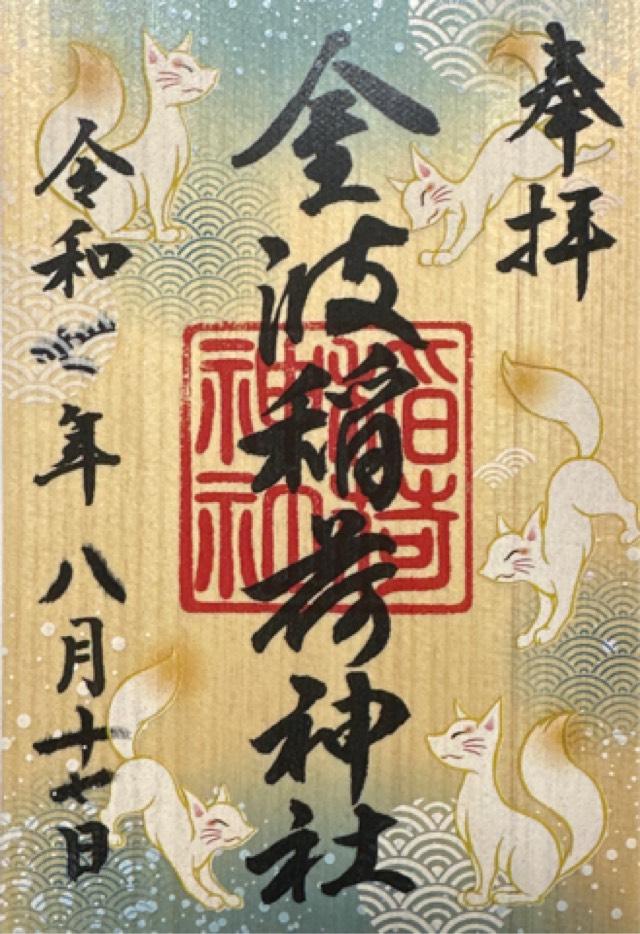 奉拝
金波稲荷神社
稲荷
神社
令和年八月十七日